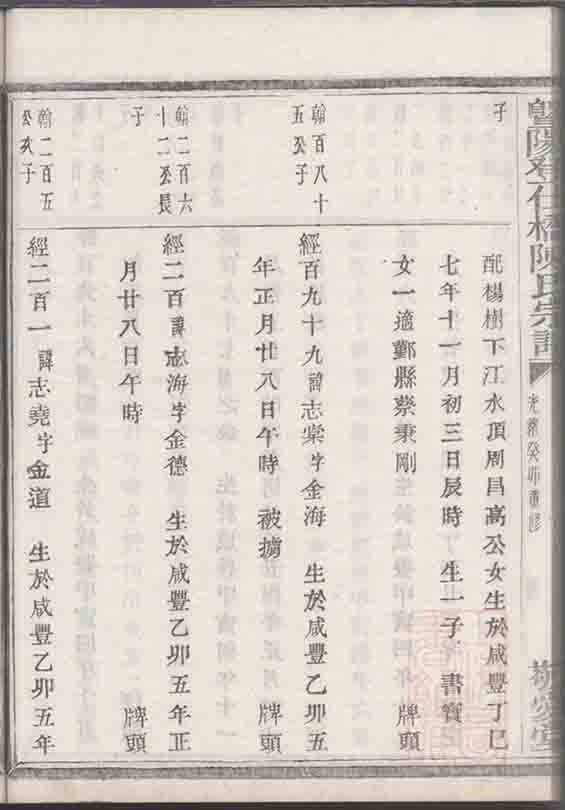 暨陽登仕橋陳氏宗譜
光緒癸卯重修
敬愛堂
子
配楊樹下江水頂周昌高公女生於咸豐丁巳
七年十一月初三日辰時 生一子 書寶
女一適鄞縣蔡秉剛 牌頭
翰百八十
五公子
經百九十九諱志棠字金海 生於咸豐乙卯五
年正月廿八日午時 被擄 牌頭
翰二百六
十二公長
子
經二百諱志海字金德 生於咸豐乙卯五年正
月廿八日午時 牌頭
翰二百五
公次子
經二百一諱志堯字金道 生於咸豐乙卯五年